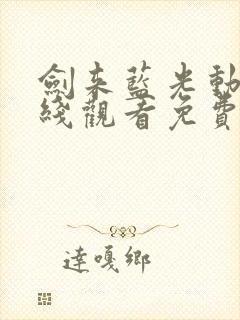 劍来藍光動
綫觀看免費
達嘎鄉